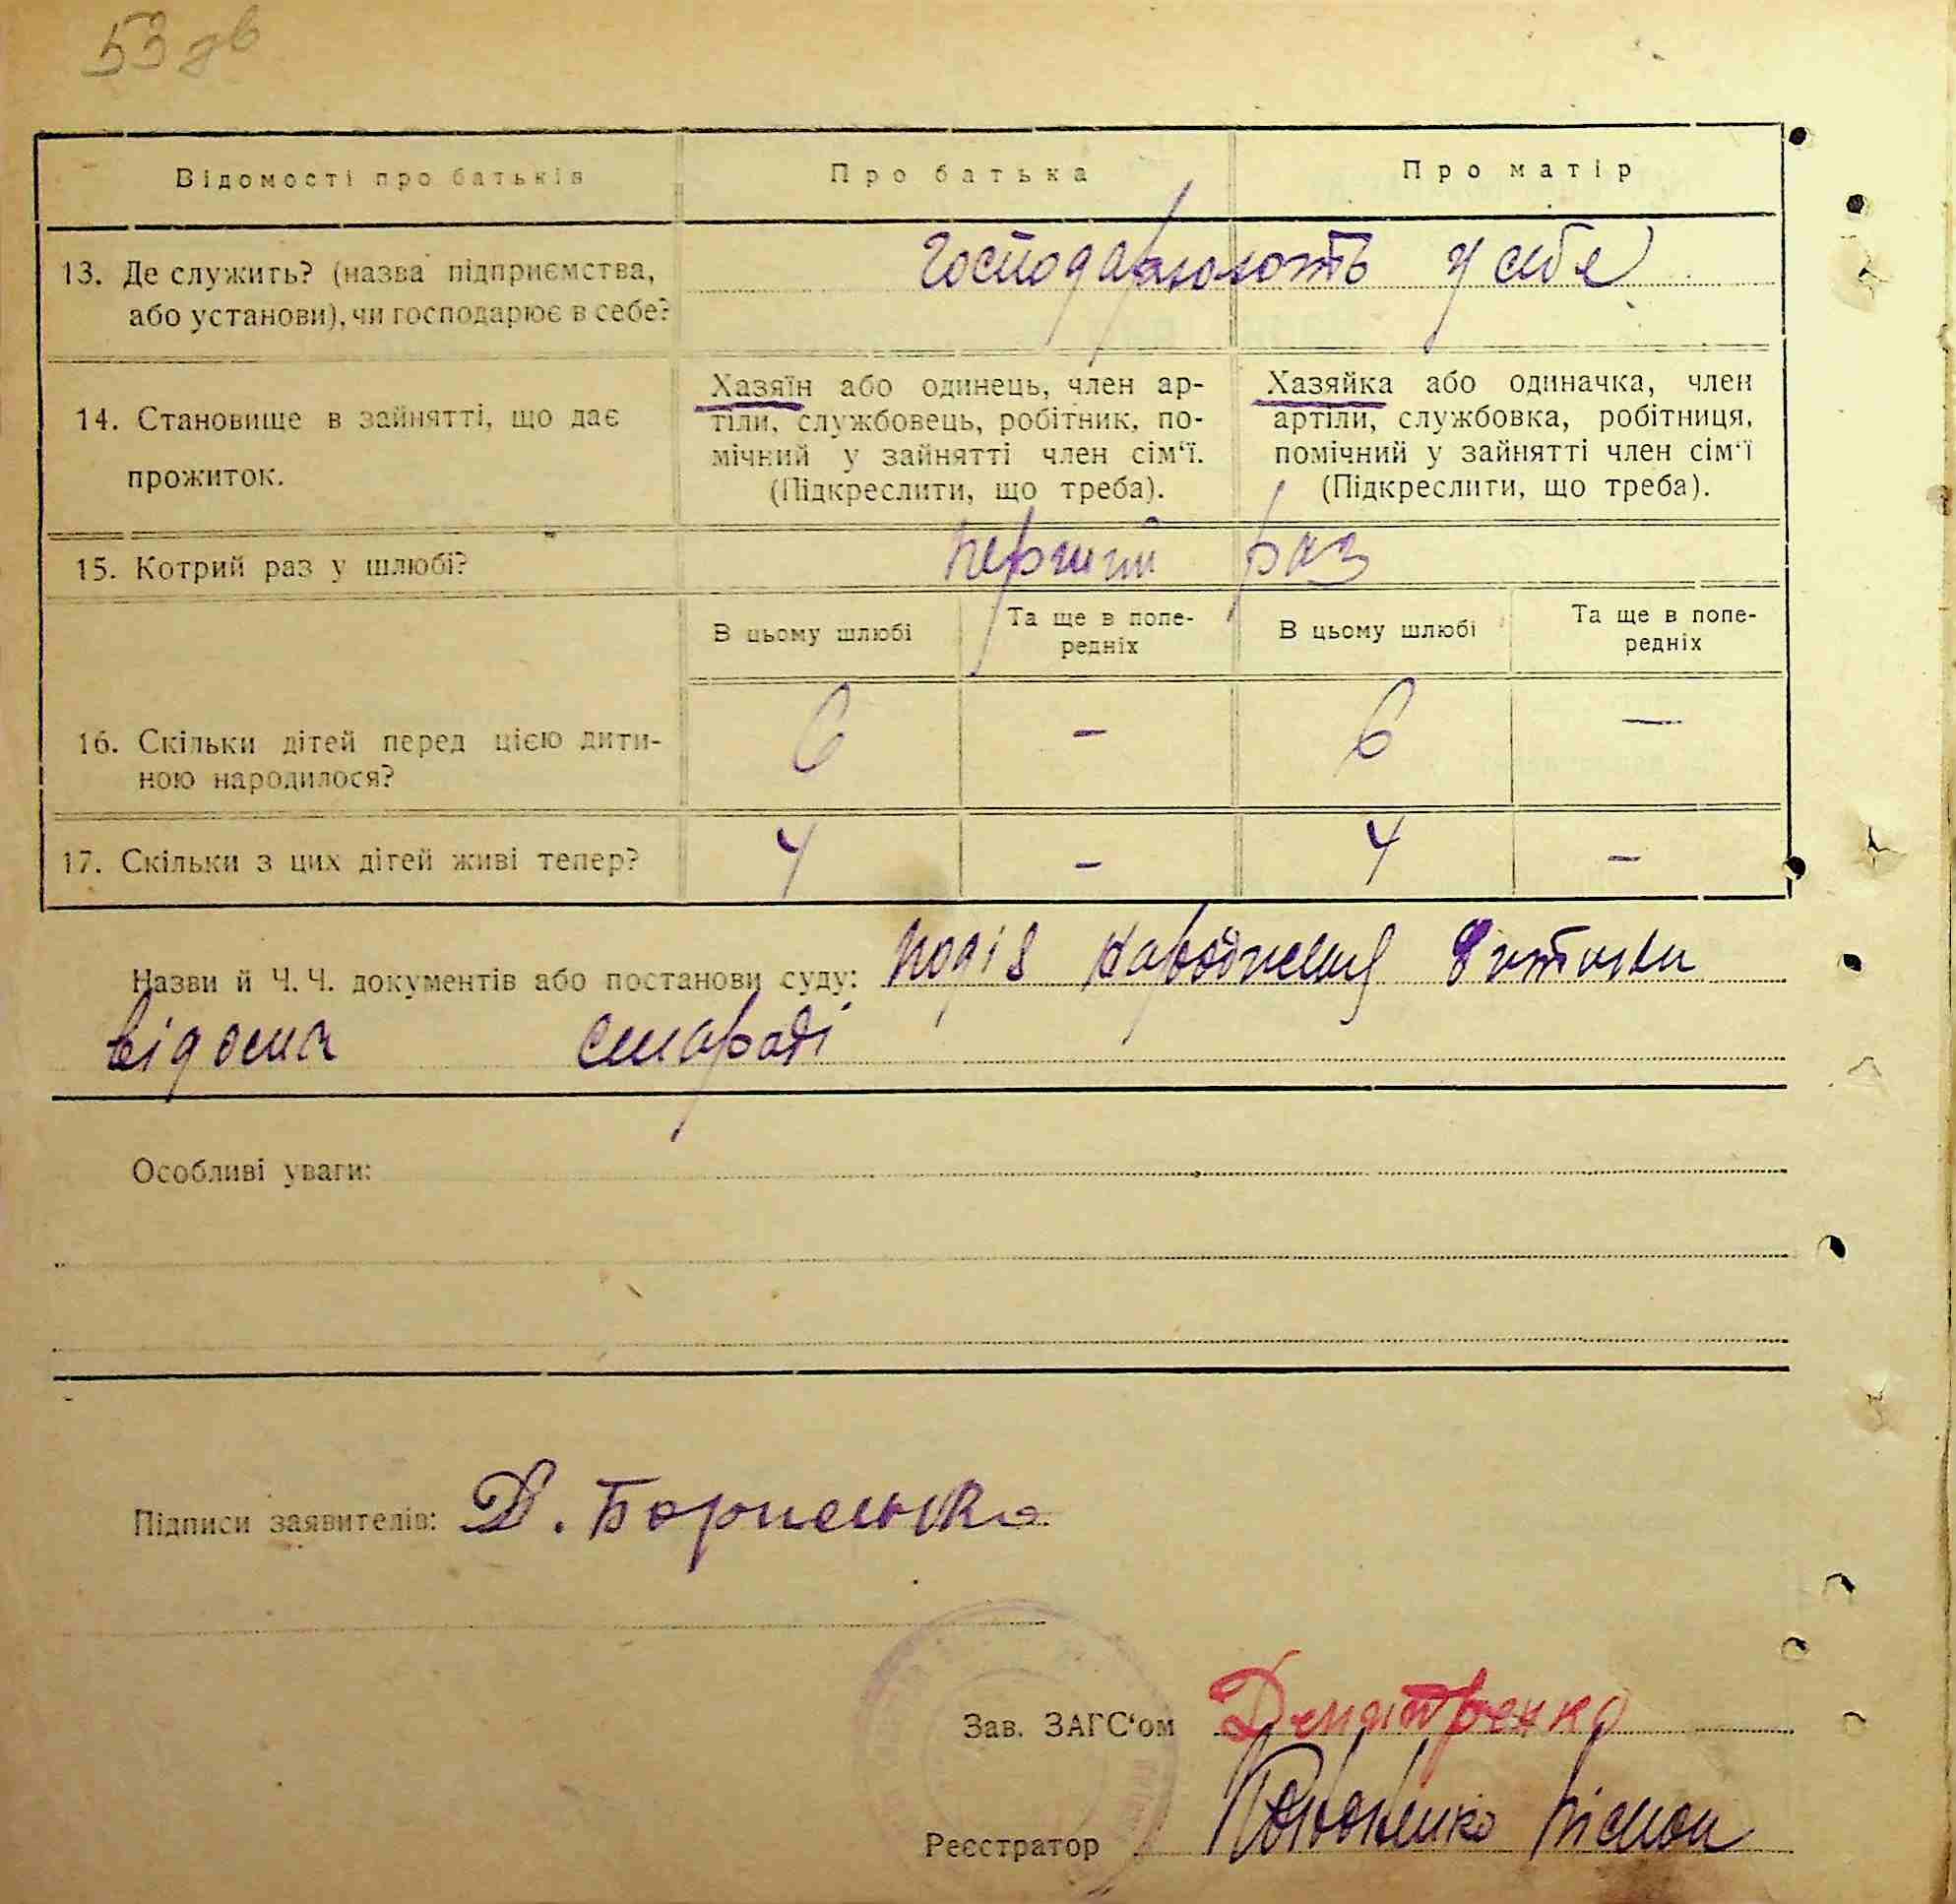 53 зв
Відомості про батьків
Про батька
Про матір
13. Де служить? (назва підприємства,
або установи), чи господарює в себе?
Господарюють у себе
14. Становище в зайнятті, що дає
прожиток.
Хазяїн або одинець, член ар-
тіли, службовець, робітник, по-
мічний у зайнятті член сім‘ї.
(Підкреслити, що треба).
Хазяйка або одиначка, член
артіли, службовка, робітниця,
помічний у зайнятті член сім‘ї
(Підкреслити, що треба).
15. Котрий раз у шлюбі?
перший раз
В цьому шлюбі
Та ще в попе-
редніх
В цьому шлюбі
Та ще в попе-
редніх
16. Скільки дітей перед цією дити-
ною народилося?
6 — 6 —
17. Скільки з цих дітей живі тепер?
4 — 4 —
Назви й Ч. Ч. документів або постанови суду: подія народження дитини
відома сільраді
Особливі уваги:
Підписи заявителів: Д. Борисенко
Зав. ЗАГС‘ом Дмитренко
Реєстратор